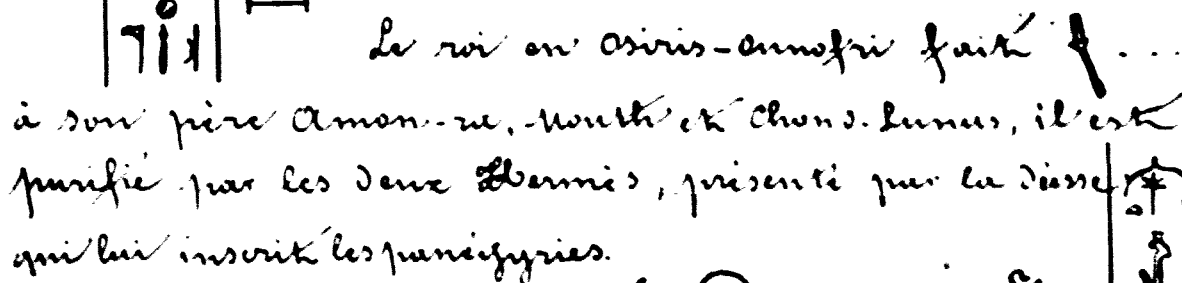 Le roi en Osiris-onnofri fait ...
à son père Amon-ra, Mouth et Chons-Lunus, il est
purifié par les deux Hermès, présenté par la déesse
qui lui inscrit les panégyries.